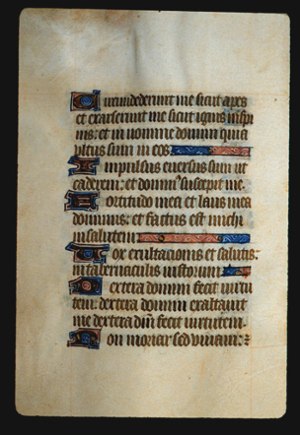 Circumdederunt me sicut apes
et exarserunt sicut ignis in spi
nis: et in nomine domini quia
ultus sum in eos
Impulsus eversus sum ut
caderem: et dominus suscepit me.
Fortitudo mea et laus mea
dominus: et factus est michi
in salutem
Vox exultacionis et salutis:
in tabernaculis iustorum
Dextera domini fecit virtu
tem: dextera domini exaltavit
me dextera dni fecit virtutem.
Non moriar sed vivam: